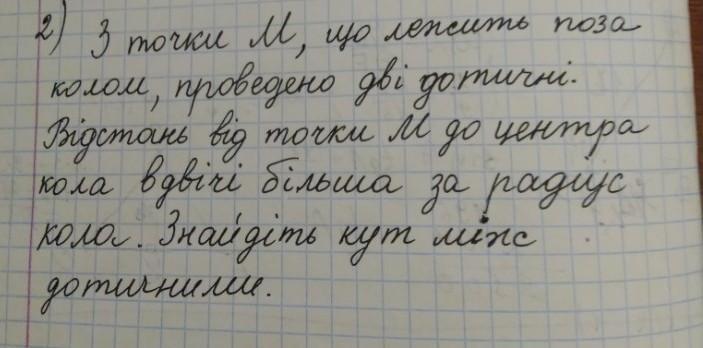 2) З точки М, що лежить поза
колом, проведено дві дотичні.
Відстань від точки М до центра
кола вдвічі більша за радіус
кола. Знайдіть кут між
дотичними.